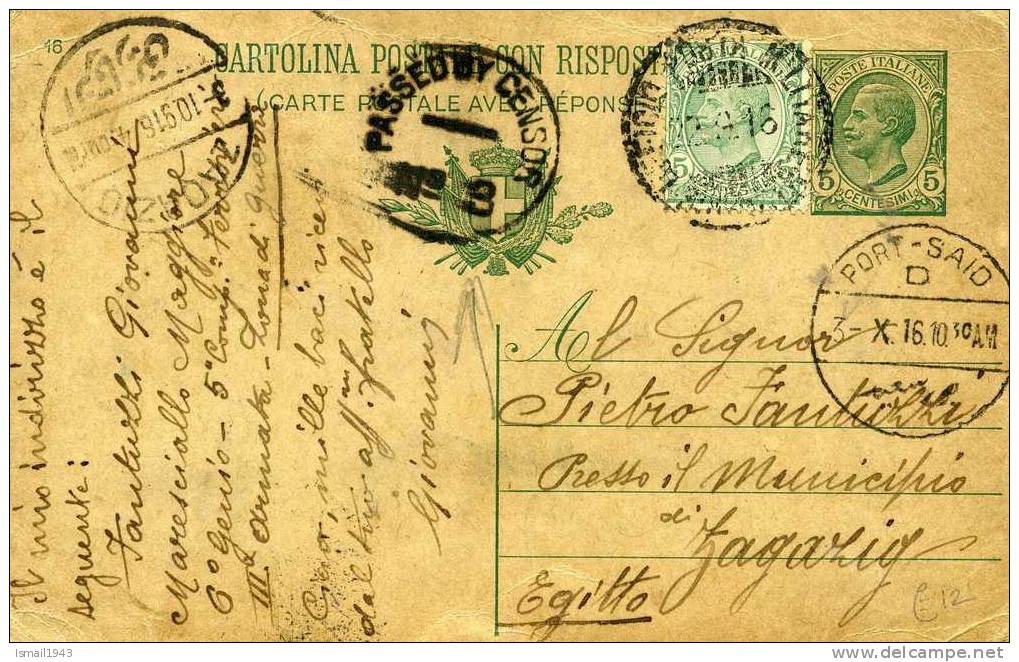 16
CARTOLINA POSTALE CON RISPOSTA
(CARTE POSTALE AVEC RÉPONSE
PASSED BY CENSOR
POSTE ITALIANE
5 CENTESIMI 5
5 CENTESIMI
PORT-SAID
D
3-X.16.10.30AM
Al Signor
Pietro Fantuzzi
Presso il Municipio
di Zagazig
Egitto
E 12
Il mio indirizzo è il
seguente:
Fantuzzi Giovanni
Maresciallo Maggiore
6° Genio - 5ª Comp:
IIIª armata - Zona di guerra
Ciao, mille baci ricevi
dal tuo aff.mo fratello
Giovanni
Ismail1943
delcampe.net